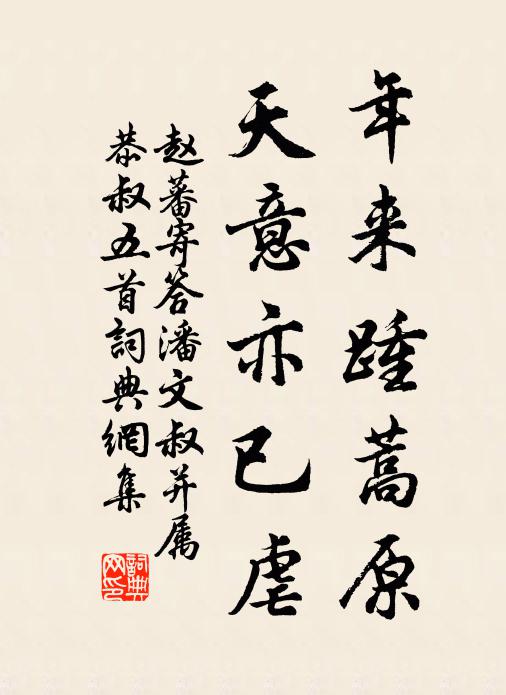 年来踵蒿原
天意亦已虐
赵蕃寄答潘文叔并属
恭叔五首詞典網集
詞典
网印